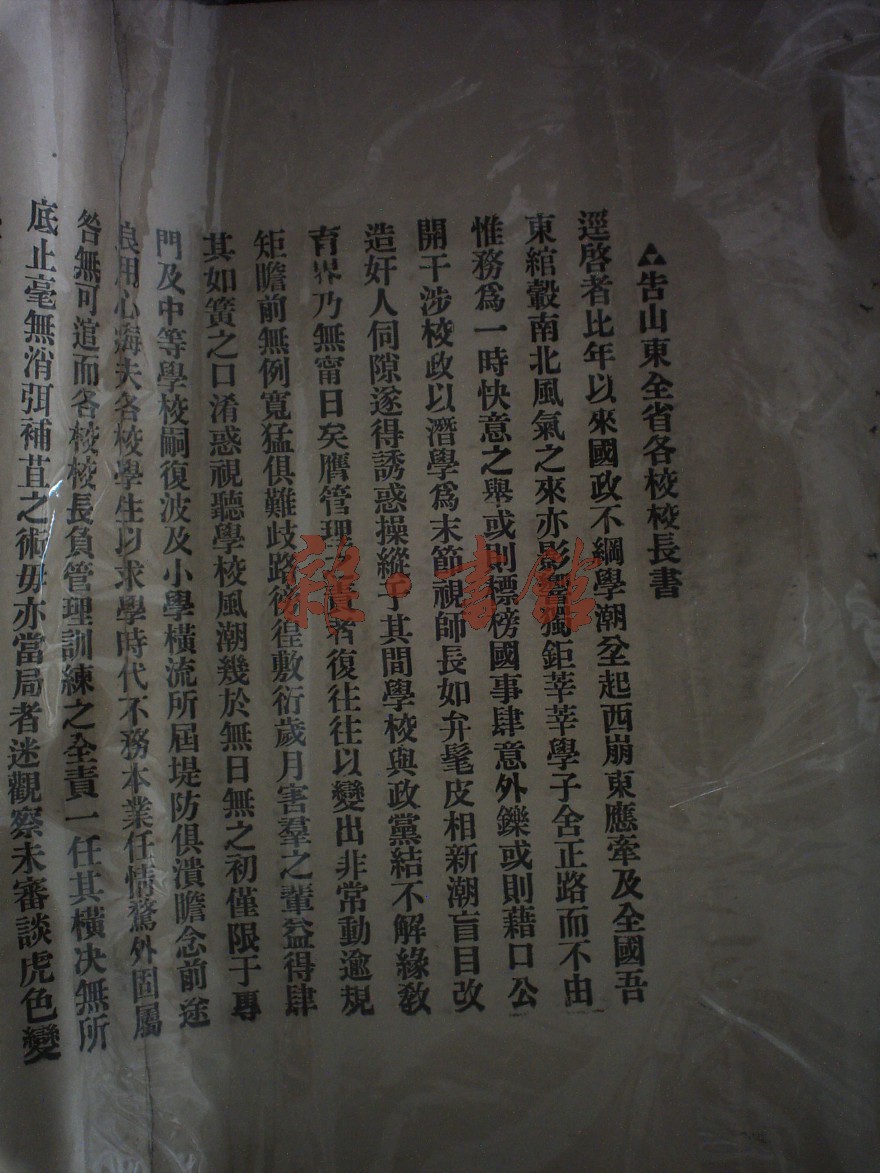 ▲告山東全省各校校長書
逕啓者比年以來國政不綱學潮坌起西崩東應牽及全國吾
東綰轂南北風氣之來亦影響獨鉅莘莘學子舍正路而不由
惟務爲一時快意之舉或則標榜國事肆意外鑠或則藉口公
開干涉校政以潛學爲末節視師長如弁髦皮相新潮盲目改
造奸人伺隙遂得誘惑操縱于其間學校與政黨結不解緣敎
育界乃無甯日矣膺管理之責者復往往以變出非常動逾規
矩瞻前無例寬猛俱難歧路徬徨敷衍歲月害羣之輩益得肆
其如簧之口淆惑視聽學校風潮幾於無日無之初僅限于專
門及中等學校嗣復波及小學橫流所屆堤防俱潰瞻念前途
良用心痗夫各校學生以求學時代不務本業任情騖外固屬
咎無可逭而各校校長負管理訓練之全責一任其橫决無所
底止毫無消弭補苴之術毋亦當局者迷觀察未審談虎色變
雜·書館